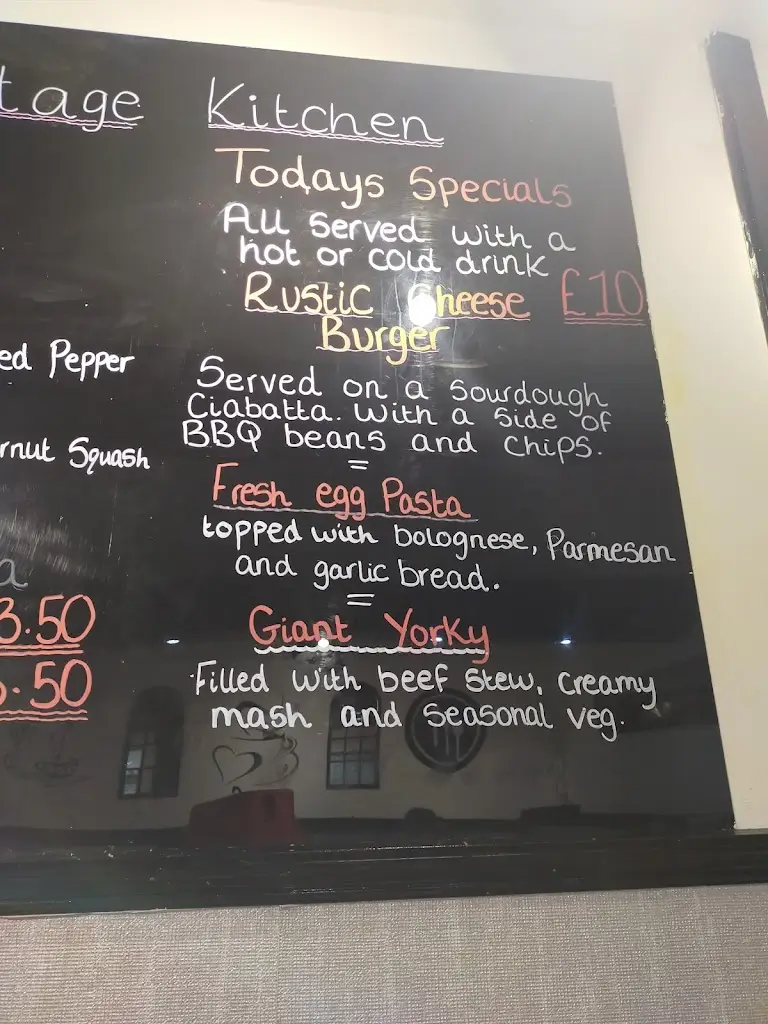 Kitchen
Todays Specials
All Served with a
hot or cold drink
Rustic Cheese £10
Burger
Served on a Sourdough
Ciabatta. With a side of
BBQ beans and chips.
=
Fresh egg Pasta
topped with bolognese, Parmesan
and garlic bread.
=
Giant Yorky
Filled with beef stew, creamy
mash and seasonal veg.
Pepper
Squash
.50
.50